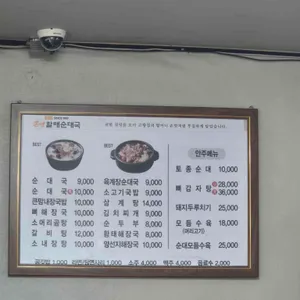 할매순대국
BEST
BEST
순대국 9,000
순대국 특 10,000
콘팝내장국밥 10,000
뼈해장국 10,000
소머리곰탕 10,000
갈비탕 12,000
소내장탕 10,000
육개장순대국 9,000
소고기국밥 9,000
삼계탕 14,000
김치찌개 9,000
순두부 8,000
황태해장국 9,000
양선지해장국 10,000
안주메뉴
토종순대 10,000
뼈감자탕 중 28,000
대 36,000
돼지두루치기 25,000
모듬수육 18,000
(머리고기)
순대모듬수육 25,000
공기밥 1,000
라면/당면사리 1,000
소주 4,000
맥주 4,000
음료수 2,000